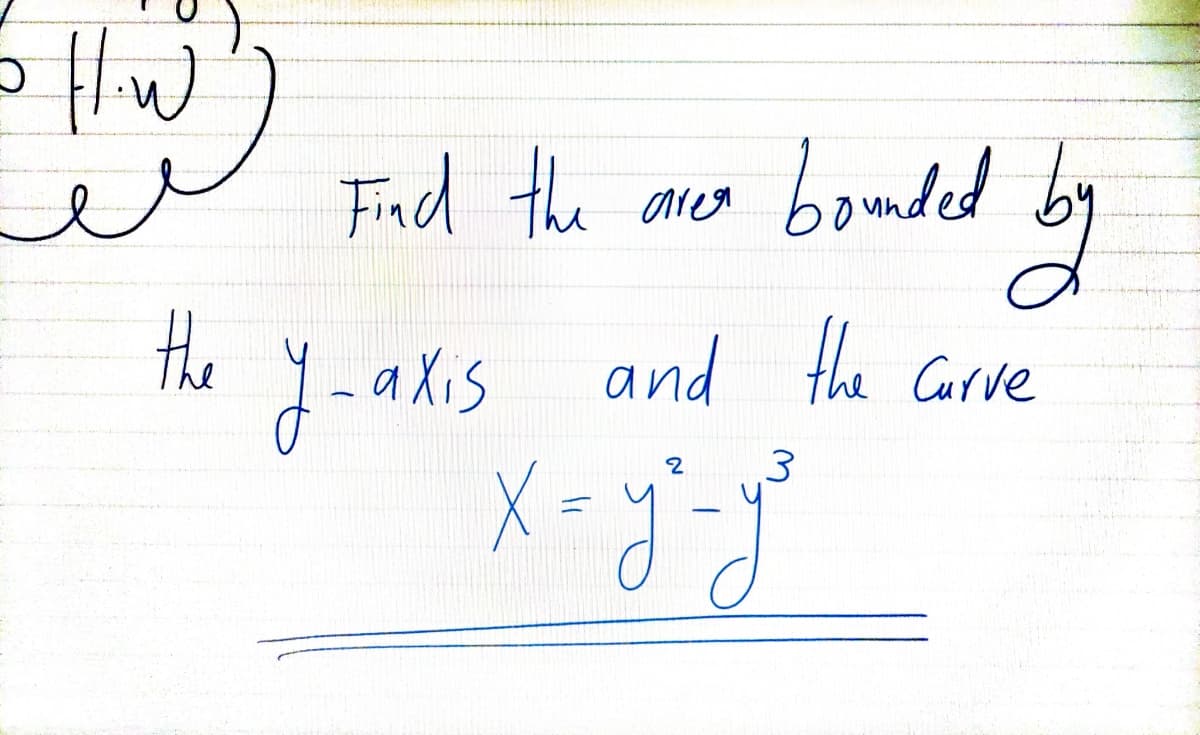 H.W
Find the area bounded by
the y-axis and the Curve
X = y² - y³